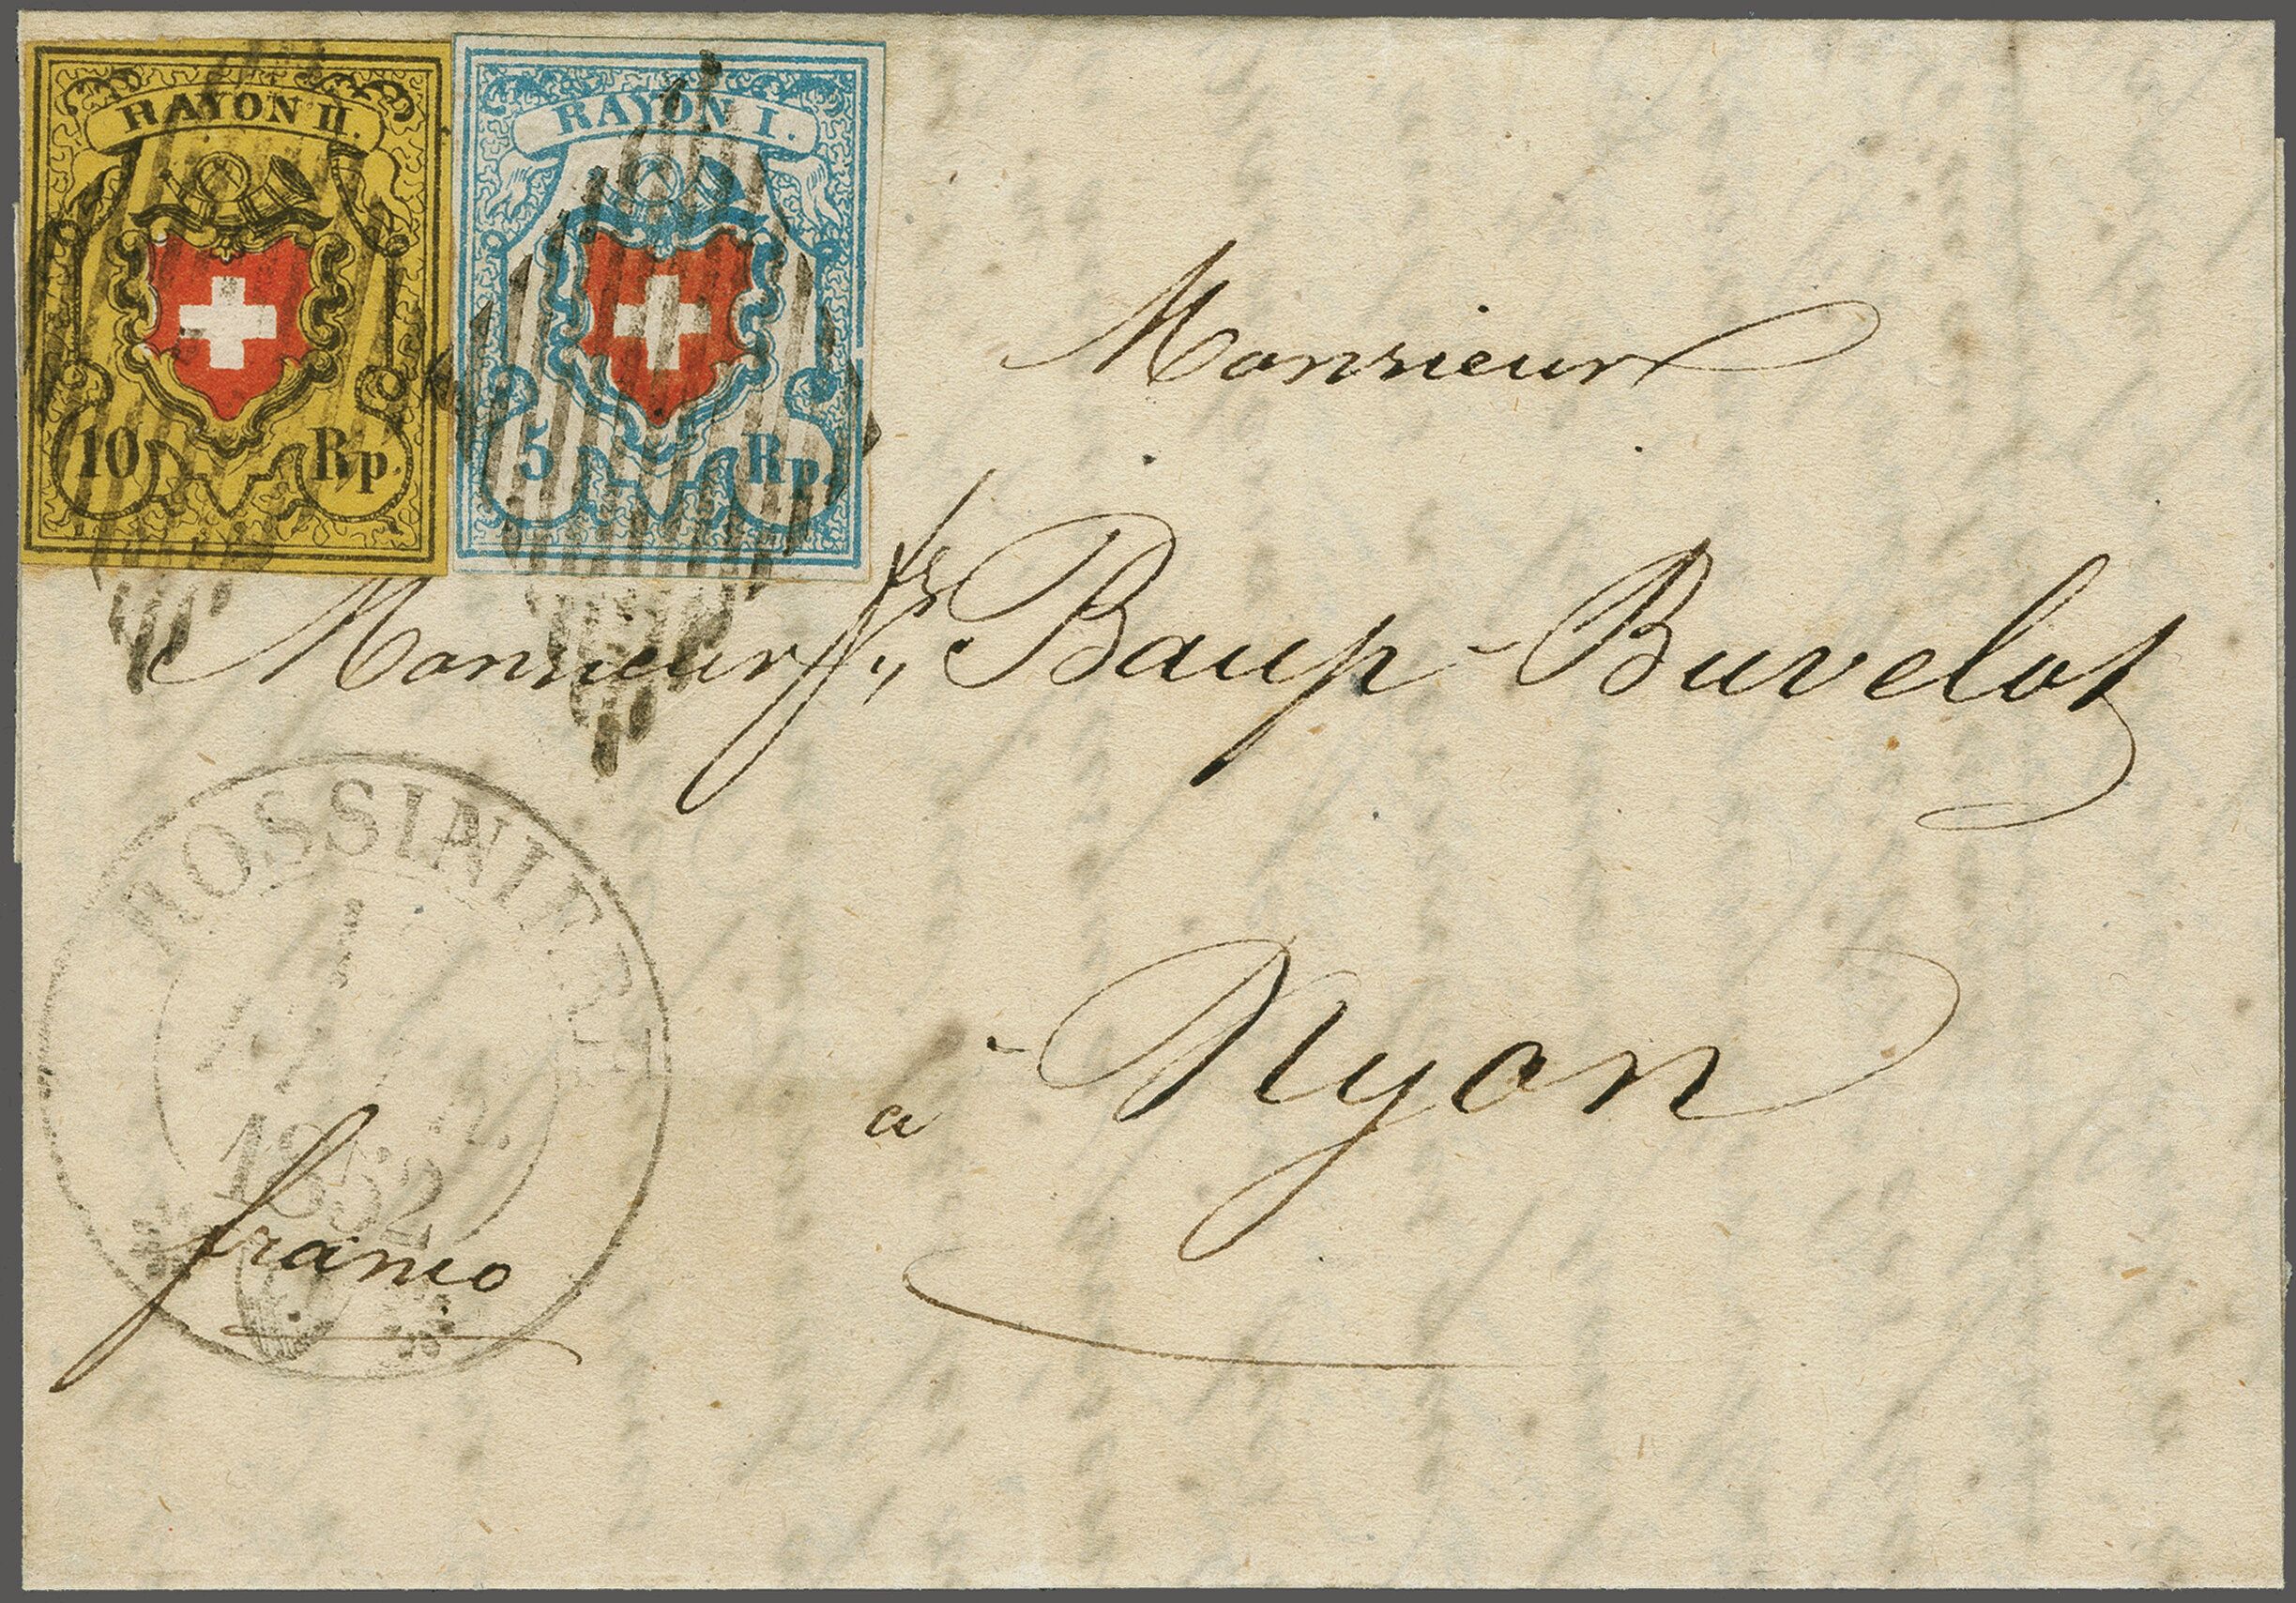 RAYON II. RAYON I.
10 Rp. 5 Rp.
Monsieur
Monsieur Baup-Buvelot
ROSSINIERE
1852
a Nyon
franco